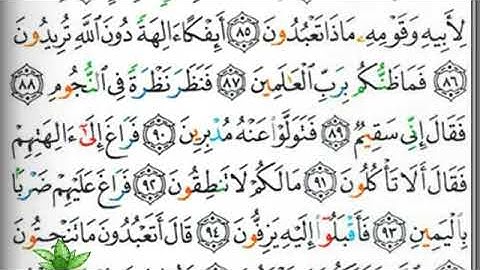 لِأَبِيهِ وَقَوْمِهِۦ مَاذَا تَعْبُدُونَ ٨٥ أَئِفْكًا ءَالِهَةً دُونَ ٱللَّهِ تُرِيدُونَ
٨٦ فَمَا ظَنُّكُم بِرَبِّ ٱلْعَٰلَمِينَ ٨٧ فَنَظَرَ نَظْرَةً فِى ٱلنُّجُومِ ٨٨
فَقَالَ إِنِّى سَقِيمٌ ٨٩ فَتَوَلَّوْا۟ عَنْهُ مُدْبِرِينَ ٩٠ فَرَاغَ إِلَىٰٓ ءَالِهَتِهِمْ
فَقَالَ أَلَا تَأْكُلُونَ ٩١ مَا لَكُمْ لَا تَنطِقُونَ ٩٢ فَرَاغَ عَلَيْهِمْ ضَرْبًۢا
بِٱلْيَمِينِ ٩٣ فَأَقْبَلُوٓا۟ إِلَيْهِ يَزِفُّونَ ٩٤ قَالَ أَتَعْبُدُونَ مَا تَنْحِتُونَ